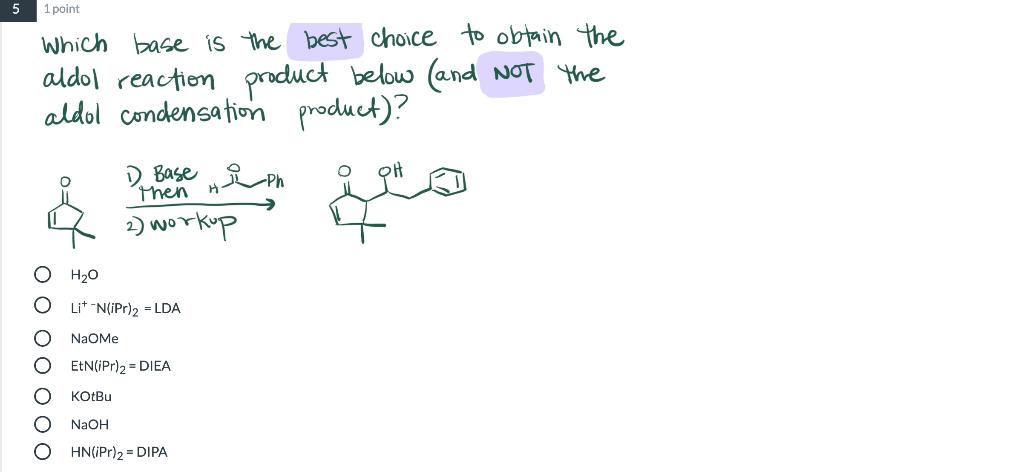 5 1 point
Which base is the best choice to obtain the
aldol reaction product below (and NOT the
aldol condensation product)?
O
1) Base
Then H O Ph
2) workup
O OH
H₂O
Li⁺ ⁻N(iPr)₂ = LDA
NaOMe
EtN(iPr)₂ = DIEA
KOtBu
NaOH
HN(iPr)₂ = DIPA